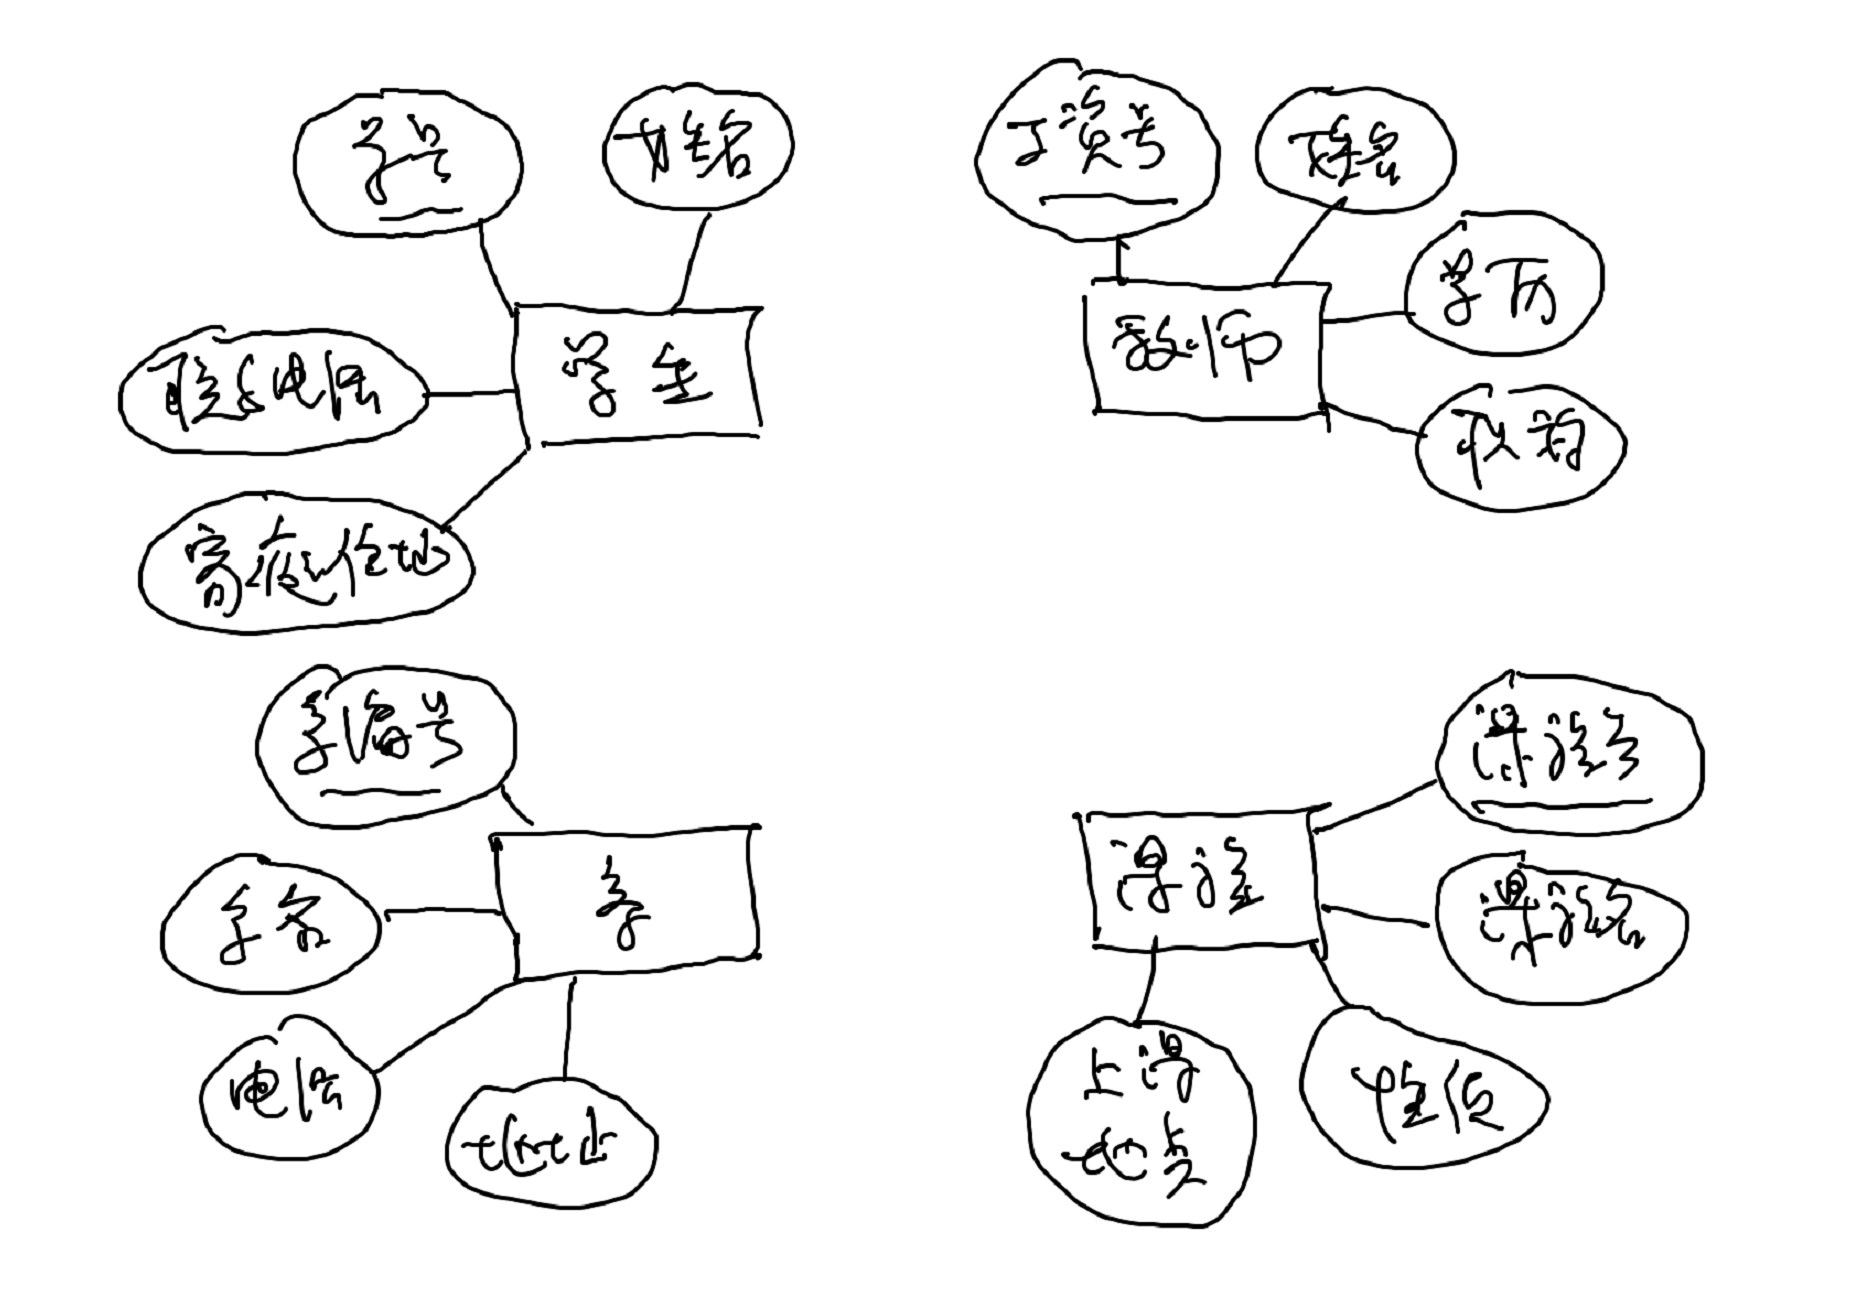 学号
姓名
联系电话
学生
家庭住址
工资号
姓名
学历
教师
职称
系编号
系名
系
电话
地址
课程号
课程名
课程
上课
地点
性质